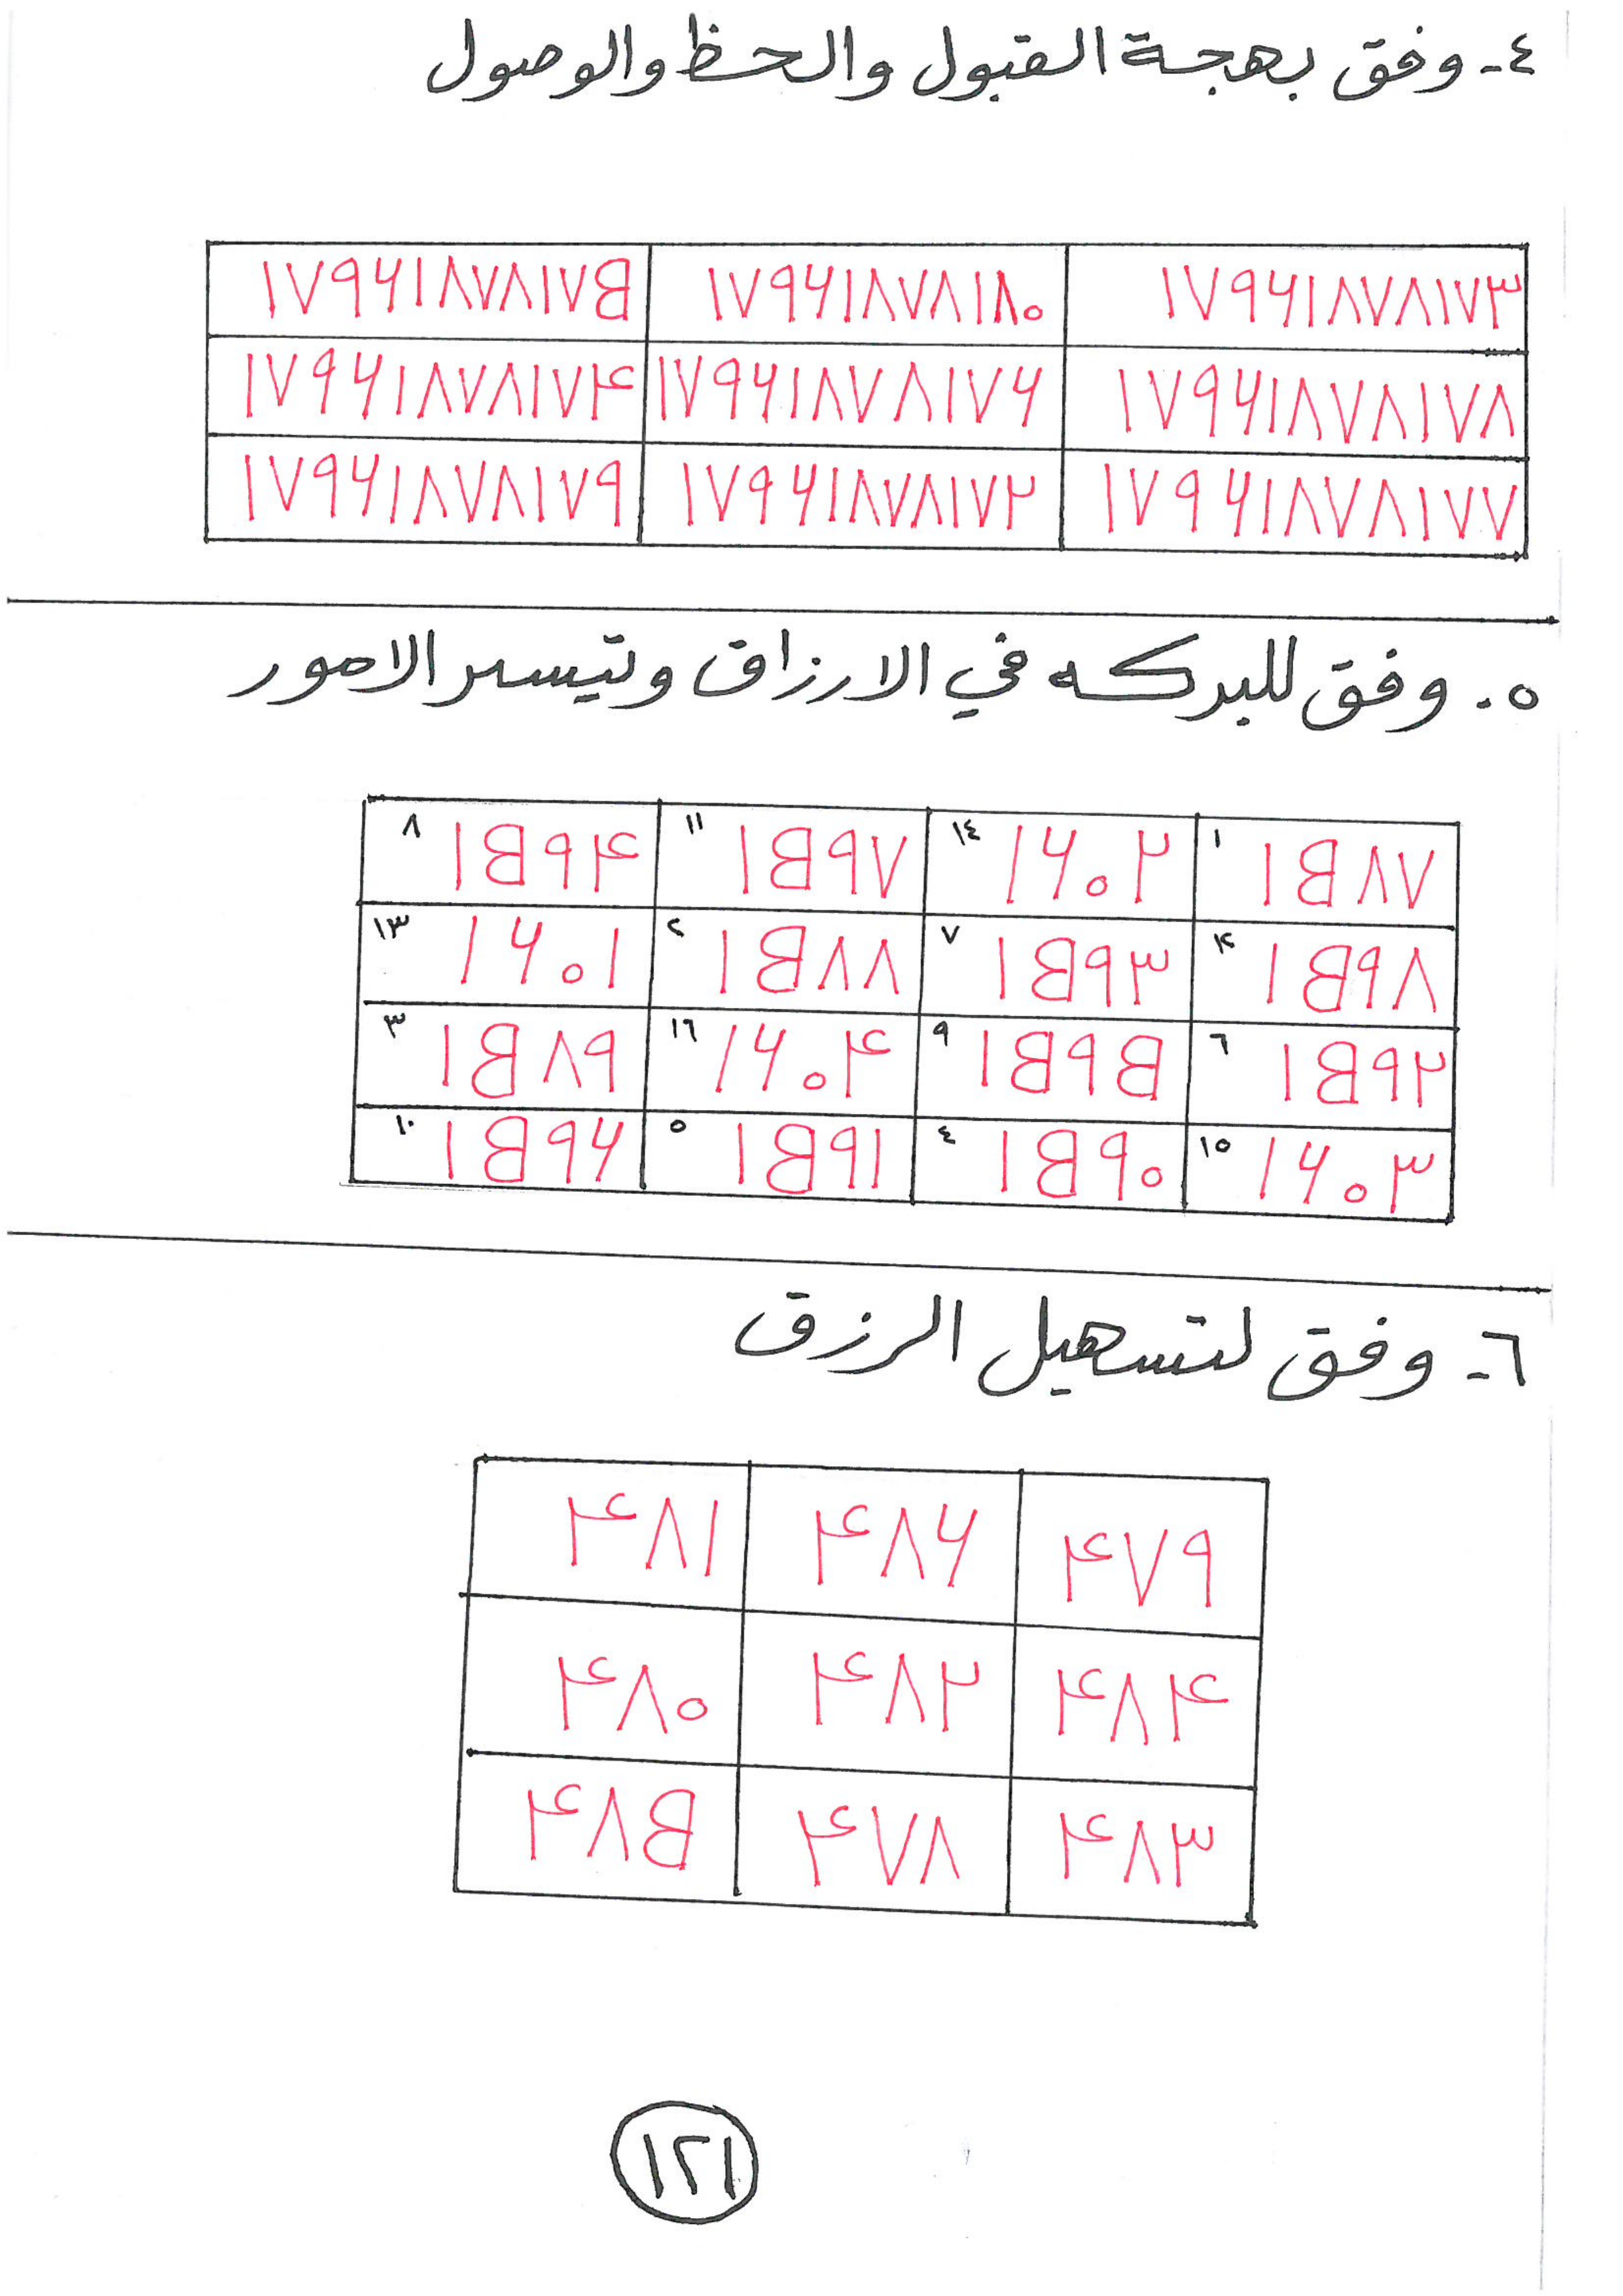 ٤- وفق بهجة القبول والحظ والوصول
١٧٩٦١٨٧٨١٧٥ ١٧٩٦١٨٧٨١٨٠ ١٧٩٦١٨٧٨١٧٣
١٧٩٦١٨٧٨١٧٤ ١٧٩٦١٨٧٨١٧٦ ١٧٩٦١٨٧٨١٧٨
١٧٩٦١٨٧٨١٧٩ ١٧٩٦١٨٧٨١٧٢ ١٧٩٦١٨٧٨١٧٧
٥- وفق للبركه في الارزاق وتيسر الامور
٨ ١٥٩٤ ١١ ١٥٩٧ ١٤ ١٦٠٢ ١ ١٥٨٧
١٣ ١٦٠١ ٢ ١٥٨٨ ٧ ١٥٩٣ ١٢ ١٥٩٨
٣ ١٥٨٩ ١٦ ١٦٠٤ ٩ ١٥٩٥ ٦ ١٥٩٢
١٠ ١٥٩٦ ٥ ١٥٩١ ٤ ١٥٩٠ ١٥ ١٦٠٣
٦- وفق لتسهيل الرزق
٤٨١ ٤٨٦ ٤٧٩
٤٨٠ ٤٨٢ ٤٨٤
٤٨٥ ٤٧٨ ٤٨٣
١٢١